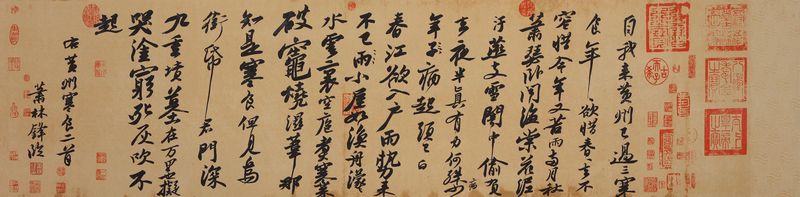 自我來黃州已過三寒
食年〻欲惜春〻去不
容惜今年又苦雨兩月秋
蕭瑟臥聞海棠花泥
汙燕支雪闇中偷負
去夜半真有力何殊病少
年子病起須已白
春江欲入戶雨勢來
不已雨小屋如漁舟濛〻
水雲裏空庖煮寒菜
破竈燒濕葦那
知是寒食但見烏
銜帋君門深
九重墳墓在萬里也擬
哭塗窮死灰吹不
起
右黃州寒食二首
蕭林鋒臨